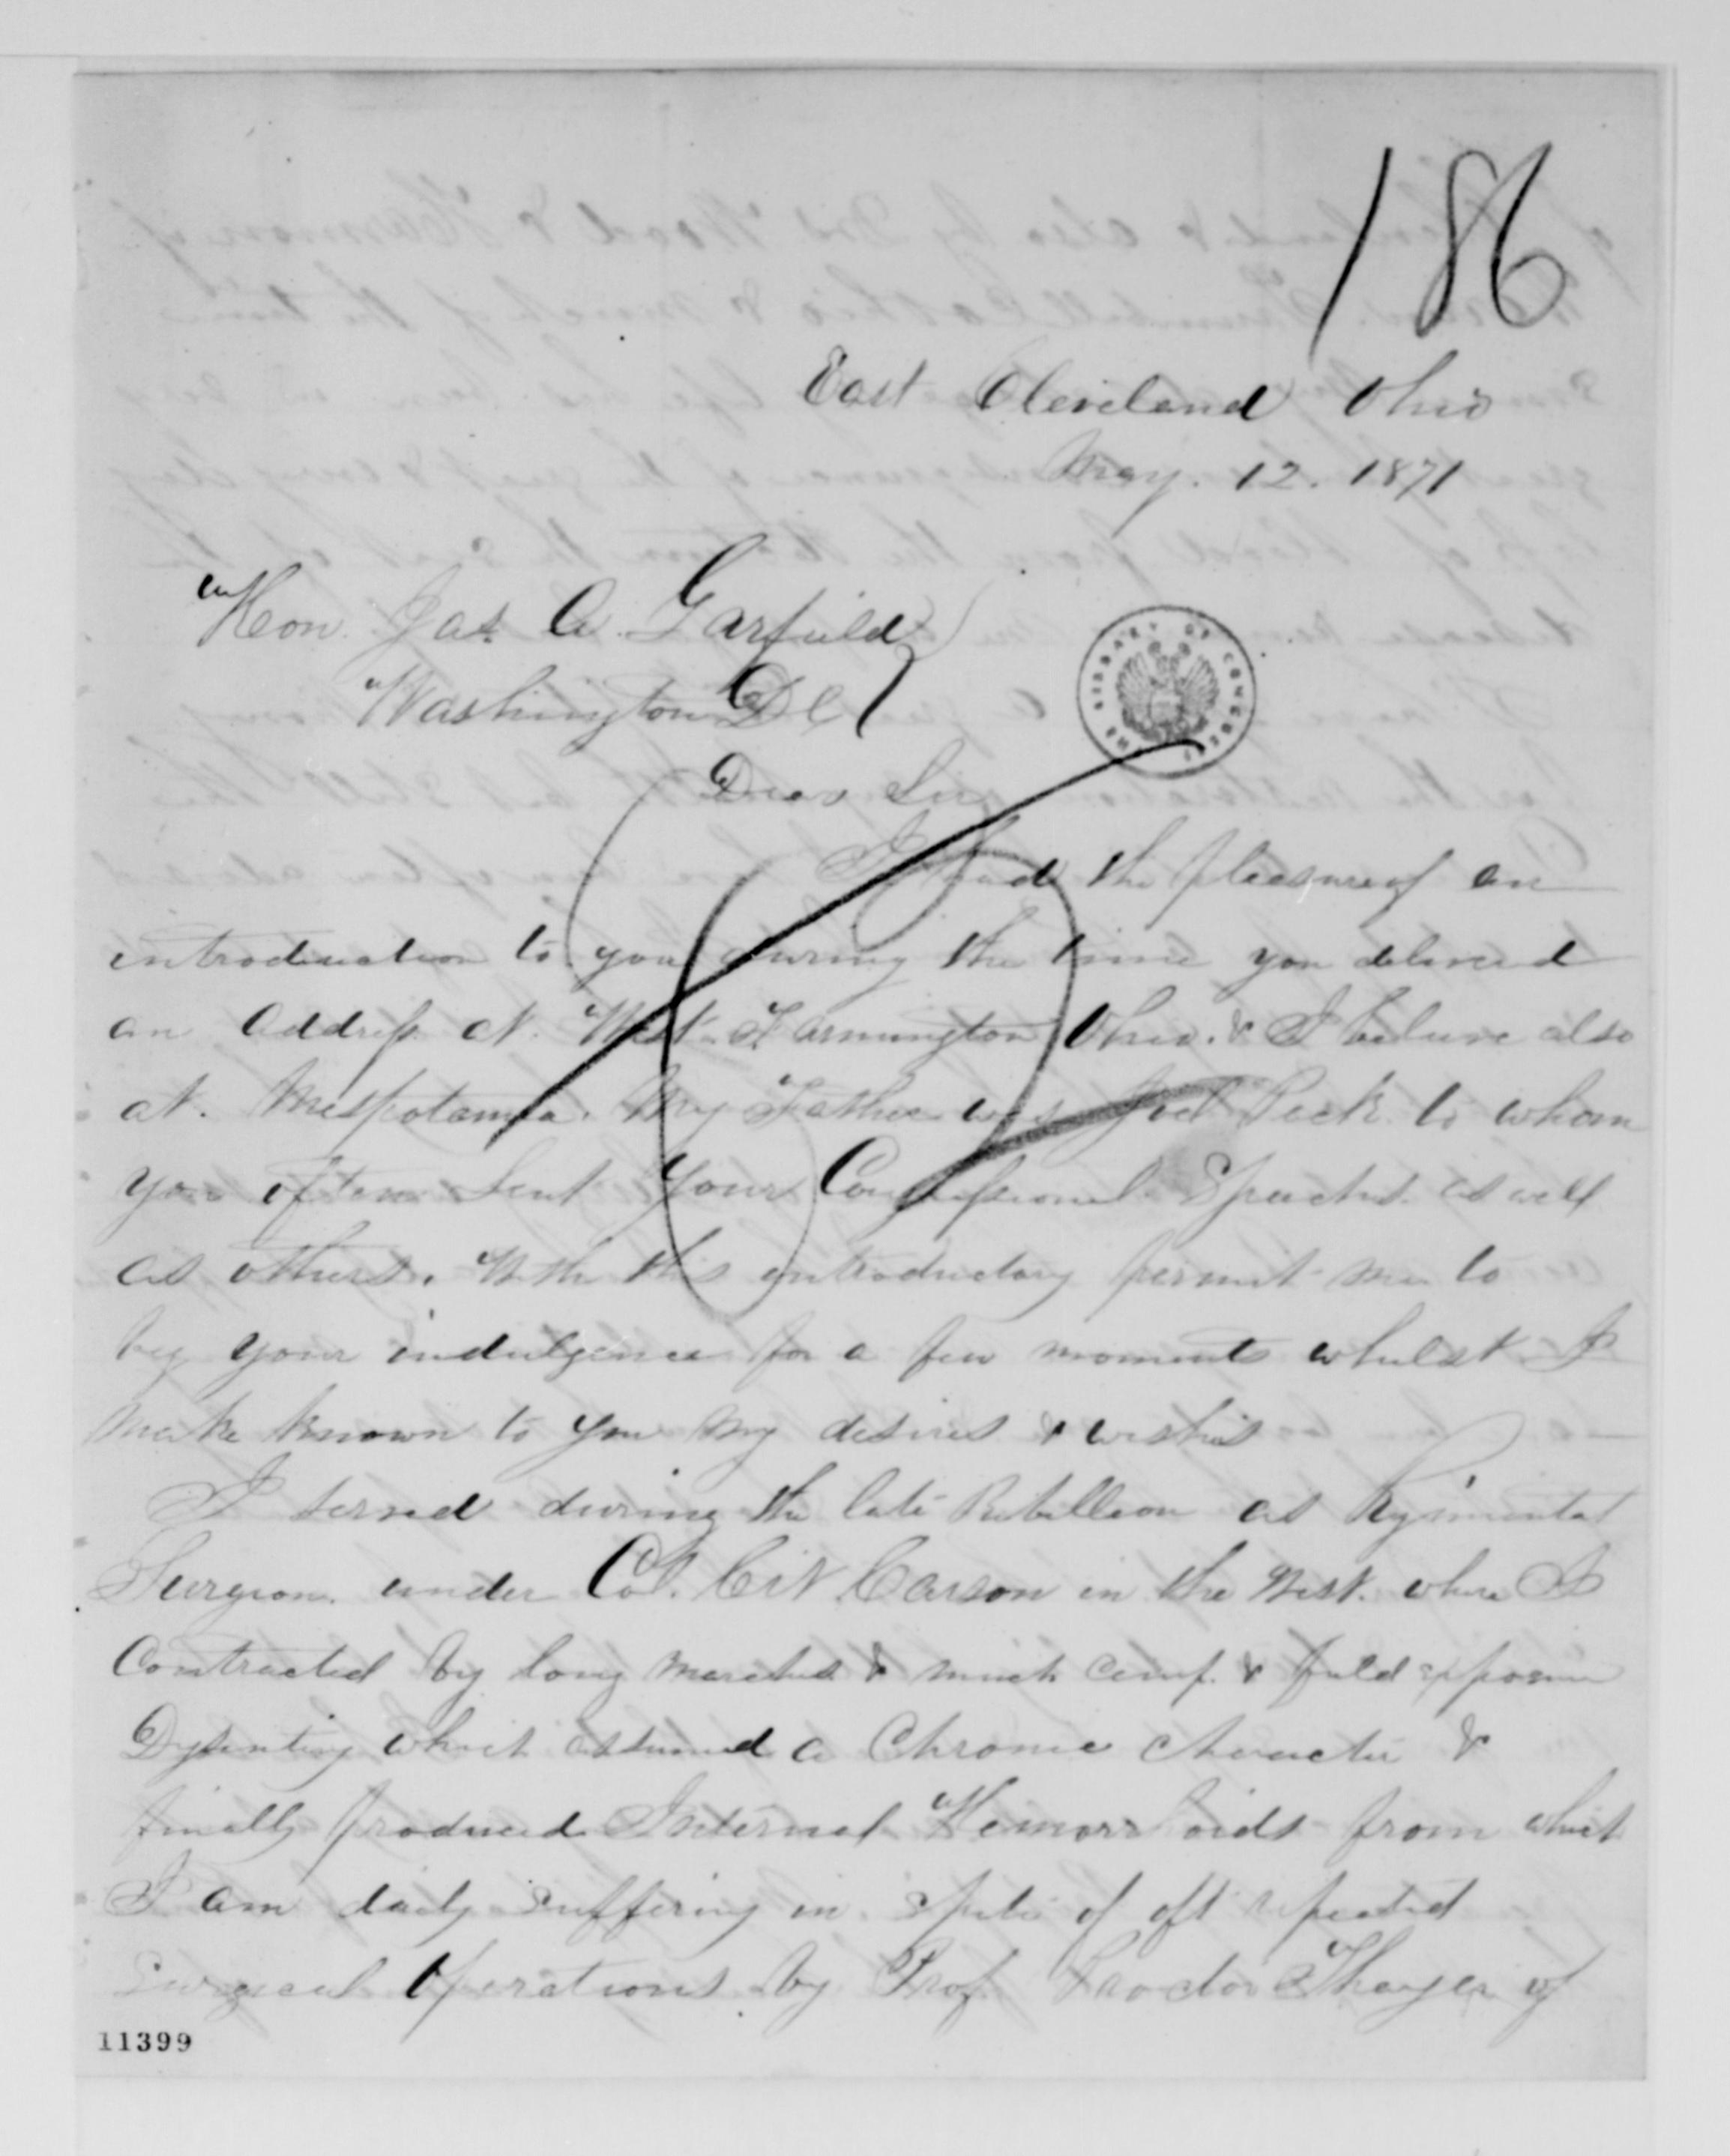 186
East Cleveland Ohio
May. 12. 1871
Hon. Jas. A. Garfield
Washington D C
THE LIBRARY OF CONGRESS
Dear Sir
I had the pleasure of an
introduction to you during the time you delivered
an Address at. West Farmington Ohio. & I believe also
at. Mespotamia. My Father was Joel Peck to whom
you often sent your Congressional Speeches as well
as others. With this introductory permit me to
beg your indulgence for a few moments whilst I
make known to you my desires & wishes
I served during the late Rebellion as Regimental
Surgeon. under Col. Cit Carson in the West. where I
Contracted by long marches & much camp. & field exposure
Dysentery which assumed a Chronic character &
finally produced Internal Hemorrhoids from which
I am daily suffering in spite of oft repeated
Surgical Operations by Prof. Proctor Thayer of
11399